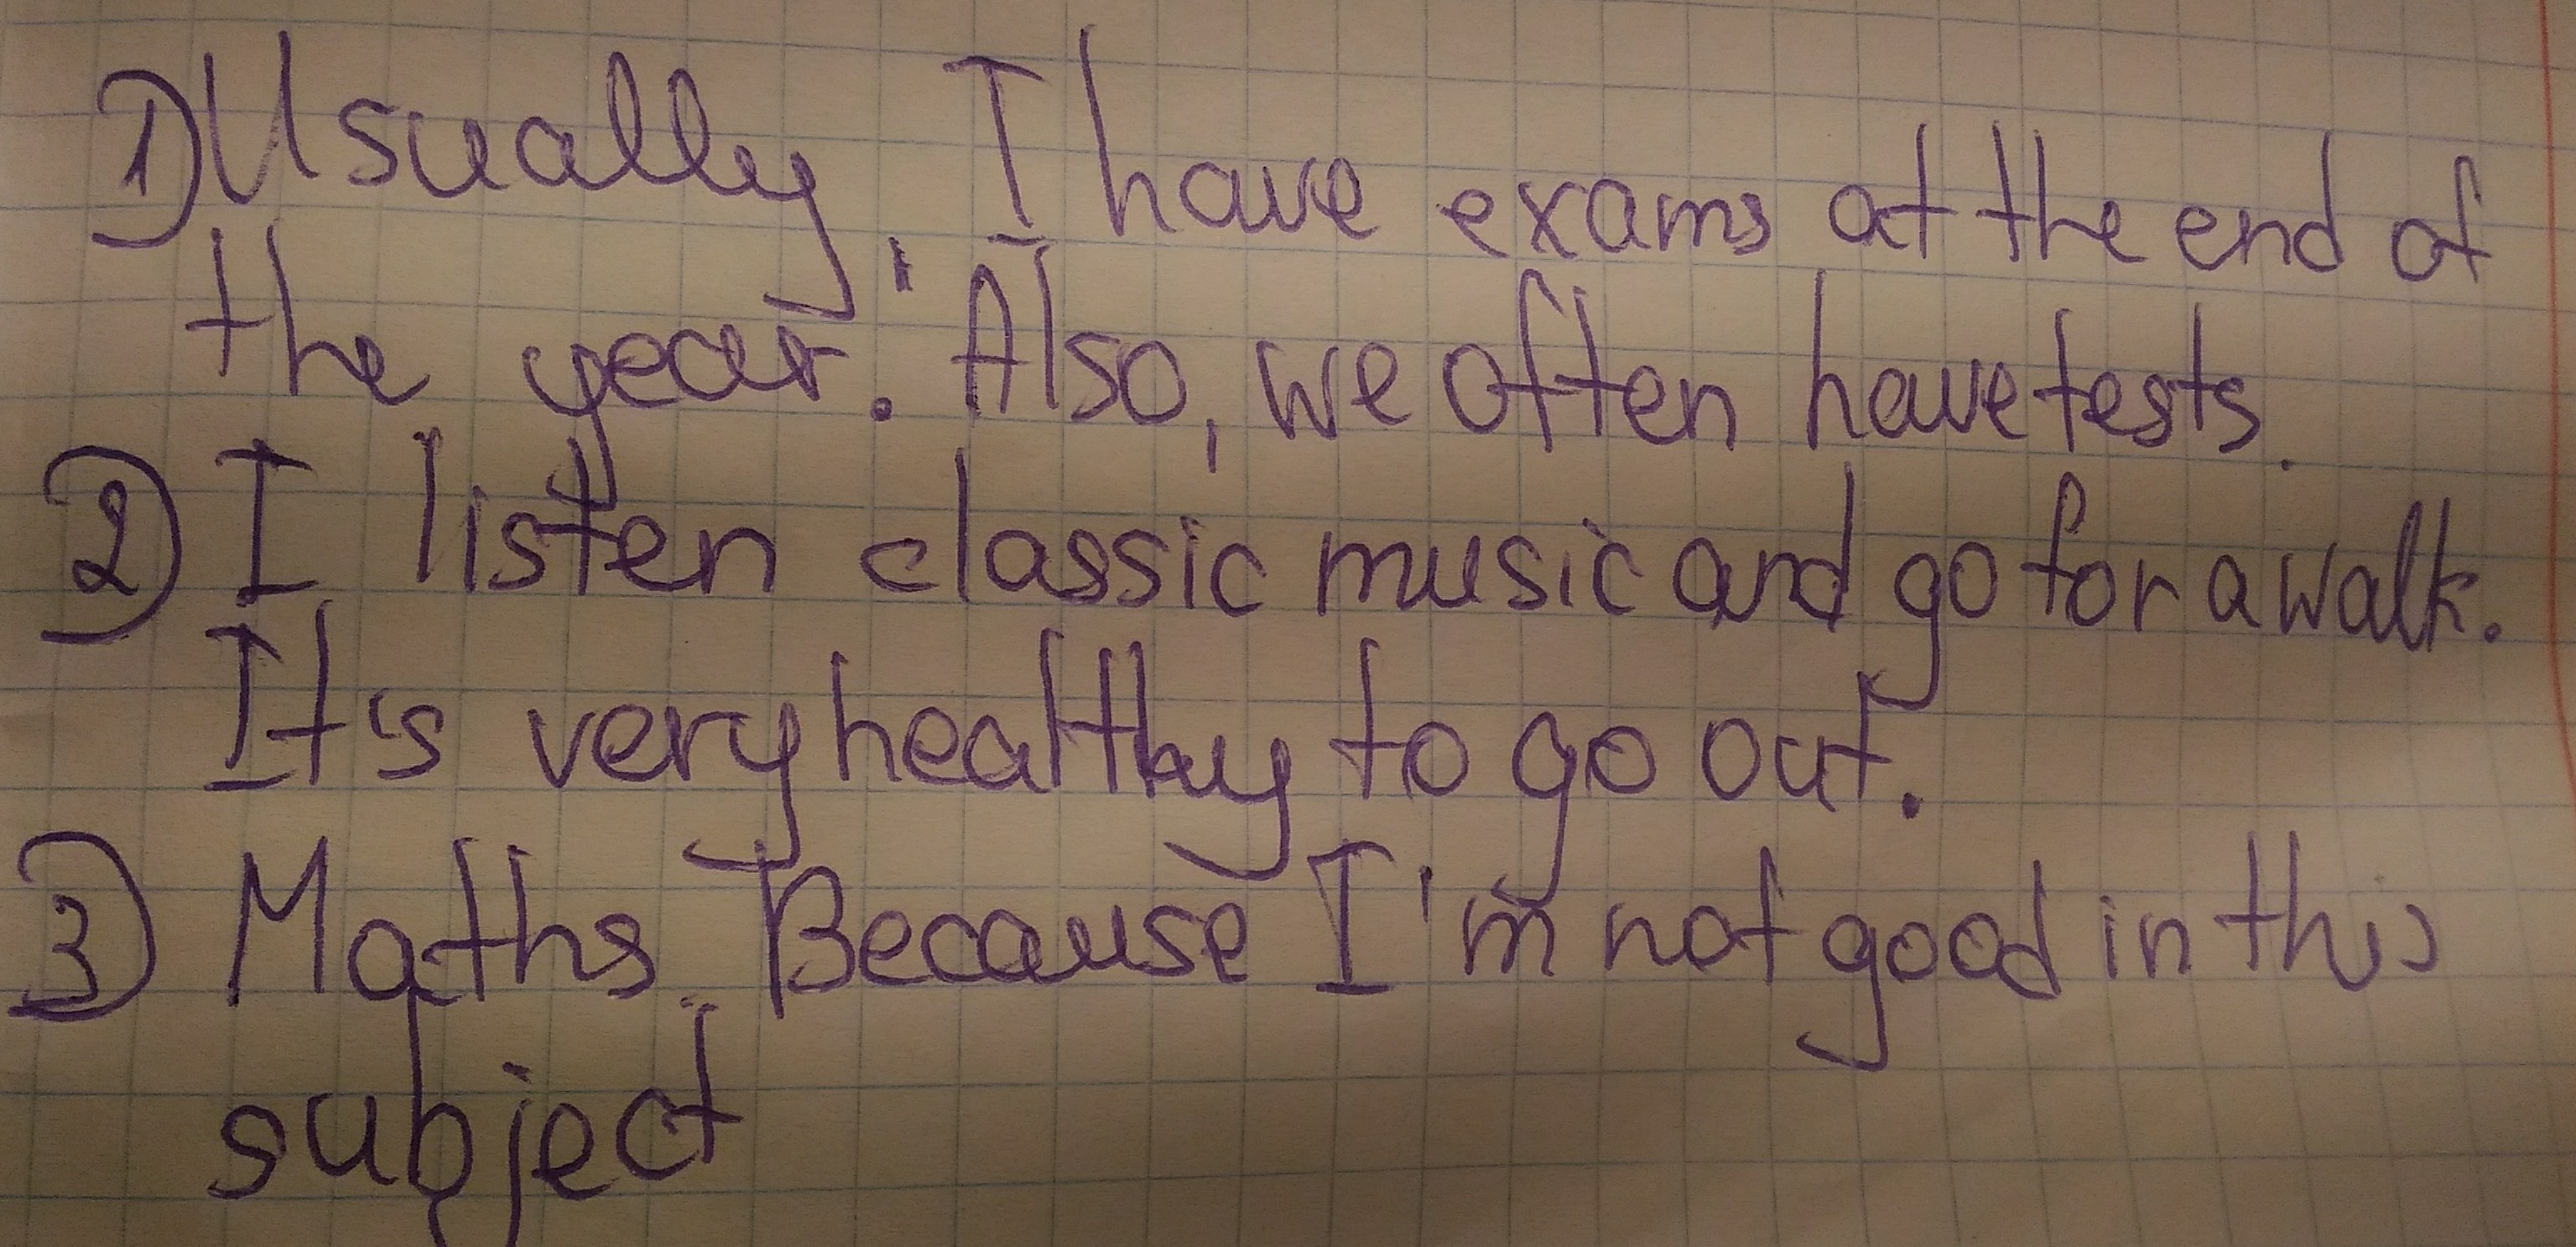 1) Usually, I have exams at the end of
the year. Also, we often have tests.
2) I listen classic music and go for a walk.
It's very healthy to go out.
3) Maths. Because I'm not good in this
subject